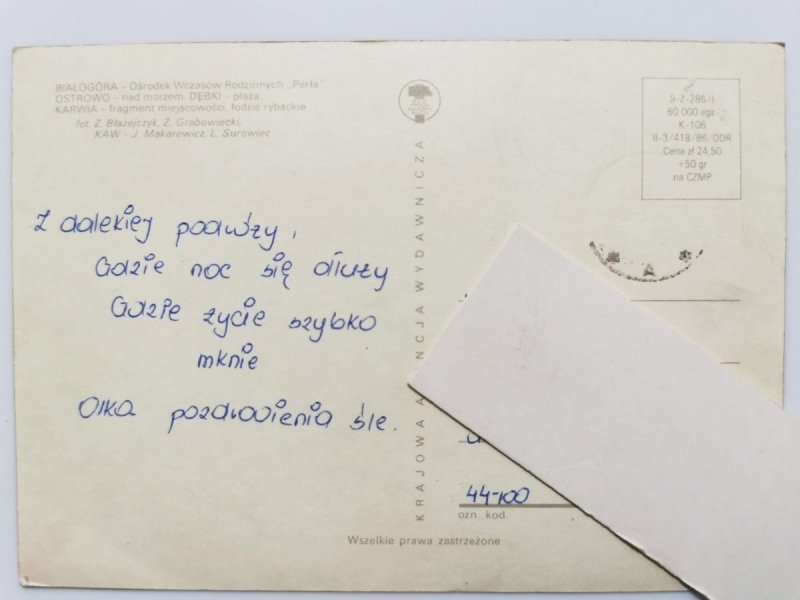 BIAŁOGÓRA – Ośrodek Wczasów Rodzinnych „Perła"
OSTROWO – nad morzem, DĘBKI – plaża
KARWIA – fragment miejscowości, łodzie rybackie
fot. Z. Błażejczyk, Z. Grabowiecki,
KAW – J. Makarewicz, Ł. Surowiec
Z dalekiej podwóży,
Gdzie noc się dłuży
Gdzie życie szybko
mknie
Olka pozdrowienia śle.
KRAJOWA A NCJA WYDAWNICZA
9-Z-286/I
60 000 egz.
K-106
II-3/418/86/DDR
Cena zł 24,50
+50 gr
na CZMP
44-100
ozn. kod.
Wszelkie prawa zastrzeżone